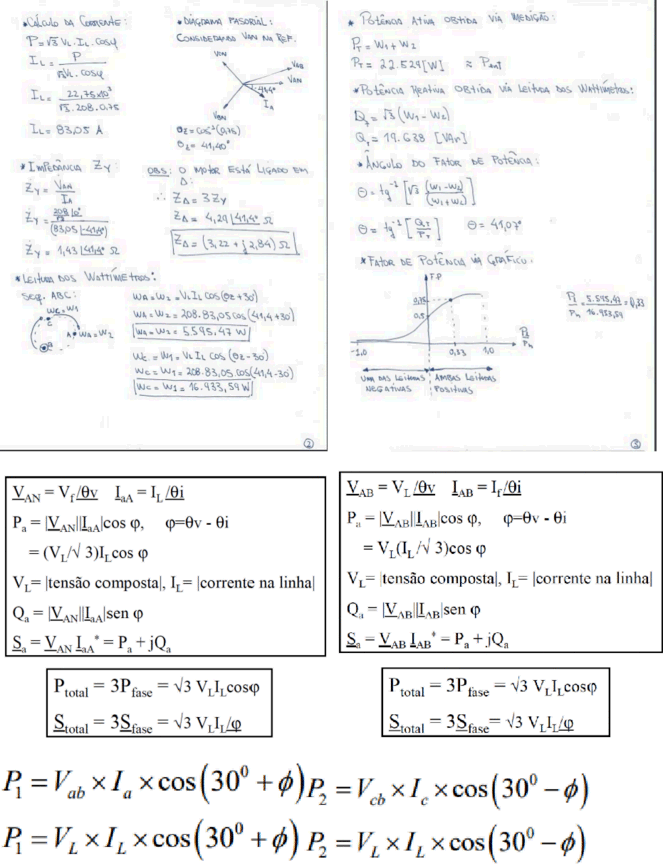 * CÁLCULO DA CORRENTE:
P = √3 VL . IL . COSφ
IL = P / √3 VL . COSφ
IL = 22,75x10³ / √3 . 208 . 0,75
IL = 83,05 A
* DIAGRAMA FASORIAL:
CONSIDERANDO VAN NA REF.
VCN
VAB
VAN
41,4°
IA
VBN
θZ = COS⁻¹(0,75)
θZ = 41,40°
* IMPEDÂNCIA ZY:
ŻY = VAN / IA
ŻY = 208/√3 |0° / (83,05 |-41,4°)
ŻY = 1,43 |41,4° Ω
OBS: O MOTOR ESTÁ LIGADO EM
Δ:
∴ ŻΔ = 3ŻY
ŻΔ = 4,29 |41,4° Ω
ŻΔ = (3,22 + j 2,84) Ω
* LEITURA DOS WATTÍMETROS:
SEQ. ABC:
WC = W1
C
A
WA = W2
B
WA = W2 = VL IL COS(θZ+30)
WA = W2 = 208.83,05 COS(41,4+30)
WA = W2 = 5.595,47 W
WC = W1 = VL IL COS(θZ-30)
WC = W1 = 208.83,05 COS(41,4-30)
WC = W1 = 16.933,59 W
2
* POTÊNCIA ATIVA OBTIDA VIA MEDIÇÃO:
PT = W1 + W2
PT = 22.529 [W] ≈ Pant
* POTÊNCIA REATIVA OBTIDA VIA LEITURA DOS WATTÍMETROS:
QT = √3 (W1 - W2)
QT = 19.638 [VAr]
* ÂNGULO DO FATOR DE POTÊNCIA:
θ = tg⁻¹ [√3 (W1-W2) / (W1+W2)]
θ = tg⁻¹ [QT / PT] θ = 41,07°
* FATOR DE POTÊNCIA VIA GRÁFICO:
F.P
0,75
0,5
-1,0
0,33
1,0
Pl / Ph
Pl / Ph = 5.595,47 / 16.933,59 = 0,33
UMA DAS LEITURAS NEGATIVAS
AMBAS LEITURAS POSITIVAS
3
V̲AN = Vf/θv I̲aA = IL/θi
Pa = |V̲AN||I̲aA|cos φ, φ=θv - θi
= (VL/√ 3)ILcos φ
VL= |tensão composta|, IL= |corrente na linha|
Qa = |V̲AN||I̲aA|sen φ
S̲a = V̲AN I̲aA* = Pa + jQa
Ptotal = 3Pfase = √3 VLILcosφ
S̲total = 3S̲fase = √3 VLIL/φ
V̲AB = VL/θv I̲AB = If/θi
Pa = |V̲AB||I̲AB|cos φ, φ=θv - θi
= VL(IL/√ 3)cos φ
VL= |tensão composta|, IL= |corrente na linha|
Qa = |V̲AB||I̲AB|sen φ
S̲a = V̲AB I̲AB* = Pa + jQa
Ptotal = 3Pfase = √3 VLILcosφ
S̲total = 3S̲fase= √3 VLIL/φ
P1 = Vab × Ia × cos(30⁰ + ϕ) P2 = Vcb × Ic × cos(30⁰ − ϕ)
P1 = VL × IL × cos(30⁰ + ϕ) P2 = VL × IL × cos(30⁰ − ϕ)